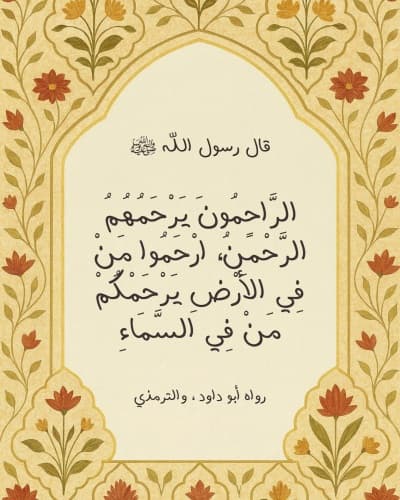 قال رسول الله ﷺ
الرَّاحِمُونَ يَرْحَمُهُمُ
الرَّحْمَنُ، ارْحَمُوا مَنْ
فِي الأَرْضِ يَرْحَمْكُمْ
مَنْ فِي السَّمَاءِ
رواه أبو داود، والترمذي